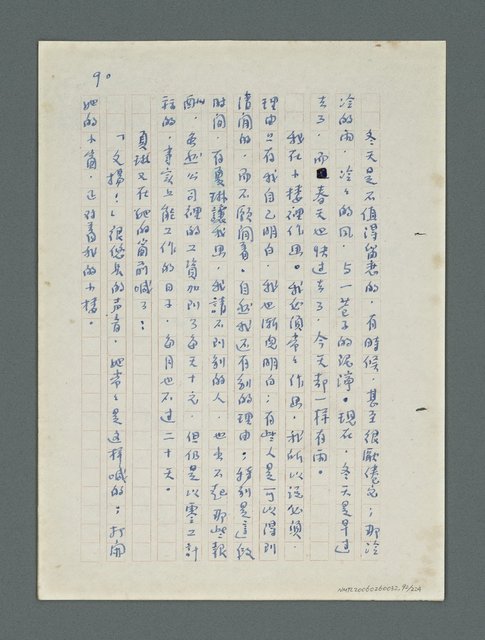 冬天是不值得留恋的，有時候，甚至很厭倦它；那冷
冷的雨，冷冷的風，与一巷子的泥濘。現在，冬天是早过
去了，而春天也快过去了，今天却一样有雨。
我在小楼裡作畫。我必須常常作畫，我所以说必須，
理由只有我自己明白，我也漸漸明白；有些人是可以得到
清闲的，而不願闲着。自然我还有别的理由；特别是這段
時间，有夏琳讓我畫，我請不到别的人，也出不起那些報
酬，虽然公司裡的工資加到了每天十元，但仍是以零工計
的，事实上能工作的日子，每月也不过二十天。
夏琳又在她的窗前喊了：
「文揚！」很悠長的声音，她常常是这样喊的。打開
她的小窗，正对着我的小楼。
90
NMTL20060260032_91/224